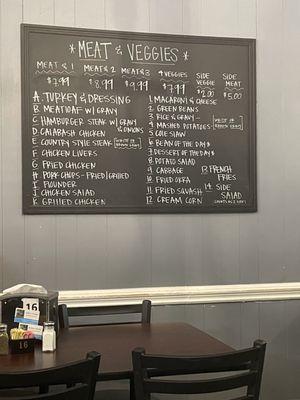 *MEAT & VEGGIES*
MEAT & 1 MEAT & 2 MEAT & 3 4 VEGGIES SIDE VEGGIE SIDE MEAT
$8.99 $9.99 $7.99 $2.00 $5.00
A. TURKEY & DRESSING
B MEATLOAF W/ GRAVY
C HAMBURGER STEAK W/ GRAVY & ONIONS
D CALABASH CHICKEN
E COUNTRY STYLE STEAK
F CHICKEN LIVERS
G FRIED CHICKEN
H PORK CHOPS - FRIED/GRILLED
I FLOUNDER
J CHICKEN SALAD
K GRILLED CHICKEN
1 MACARONI & CHEESE
2 GREEN BEANS
3 RICE & GRAVY
4 MASHED POTATOES
5 COLE SLAW
6 BEAN OF THE DAY $
7 DESSERT OF THE DAY $
8 POTATO SALAD
9 CABBAGE
10 FRIED OKRA
11 FRIED SQUASH
12 CREAM CORN
13 FRENCH FRIES
14 SIDE SALAD
16